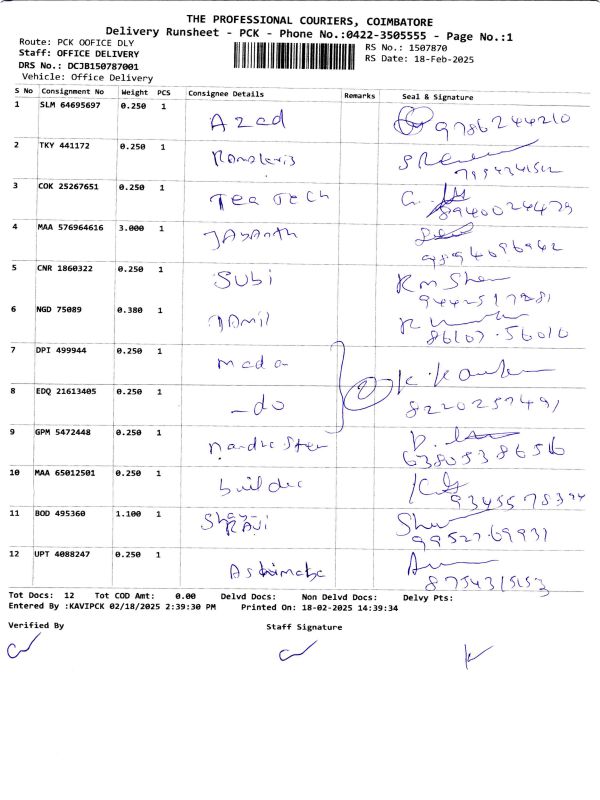 THE PROFESSIONAL COURIERS, COIMBATORE
Delivery Runsheet - PCK - Phone No.:0422-3505555 - Page No.:1
Route: PCK OOFICE DLY
RS No.: 1507870
Staff: OFFICE DELIVERY
RS Date: 18-Feb-2025
DRS No.: DCJB150787001
Vehicle: Office Delivery
S No Consignment No Weight PCS Consignee Details Remarks Seal & Signature
1 SLM 64695697 0.250 1 Azad 9786244210
2 TKY 441172 0.250 1
3 COK 25267651 0.250 1 Tea Tech 8940024479
4 MAA 576964616 3.000 1 Jayanth 9894096962
5 CNR 1860322 0.250 1 Subi
6 NGD 75089 0.380 1 Tamil 86107.56010
7 DPI 499944 0.250 1
8 EDQ 21613405 0.250 1 -do 2 8220257491
9 GPM 5472448 0.250 1 6380538656
10 MAA 65012501 0.250 1
11 BOD 495360 1.100 1 Ravi 99527.69931
12 UPT 4088247 0.250 1
Tot Docs: 12 Tot COD Amt: 0.00 Delvd Docs: Non Delvd Docs: Delvy Pts:
Entered By :KAVIPCK 02/18/2025 2:39:30 PM Printed On: 18-02-2025 14:39:34
Verified By Staff Signature